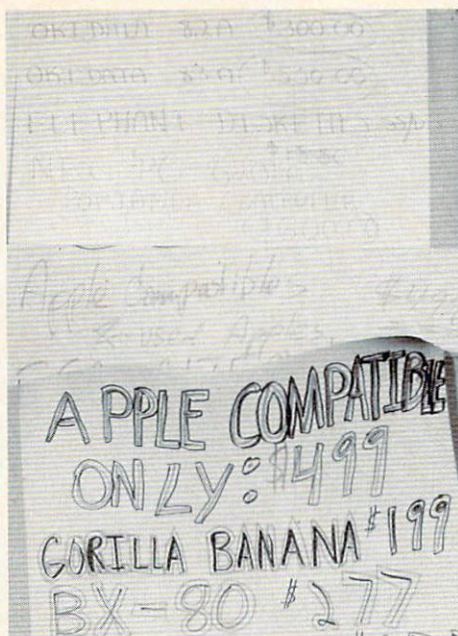 OKIDATA 82A $300.00
OKIDATA 83A $
ELEPHANT DISKETTES
NEC PC
Apple Compatibles $499
& used Apples
APPLE COMPATIBLE
ONLY: $499
GORILLA BANANA $199
BX-80 $277